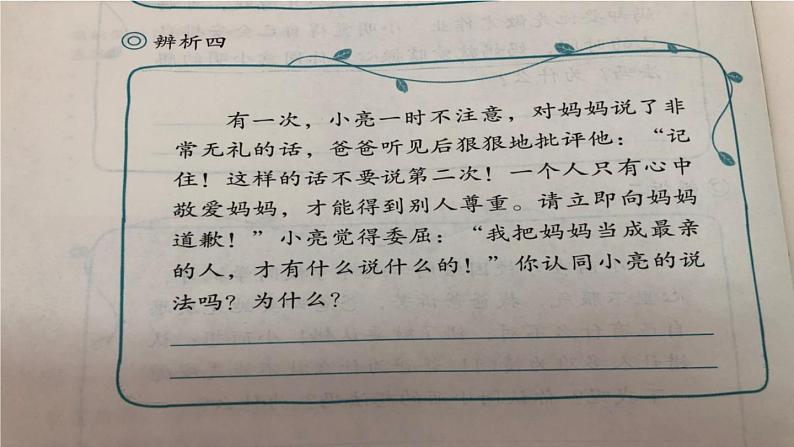 辨析四
有一次，小亮一时不注意，对妈妈说了非
常无礼的话，爸爸听见后狠狠地批评他：“记
住！这样的话不要说第二次！一个人只有心中
敬爱妈妈，才能得到别人尊重。请立即向妈妈
道歉！”小亮觉得委屈：“我把妈妈当成最亲
的人，才有什么说什么的！”你认同小亮的说
法吗？为什么？